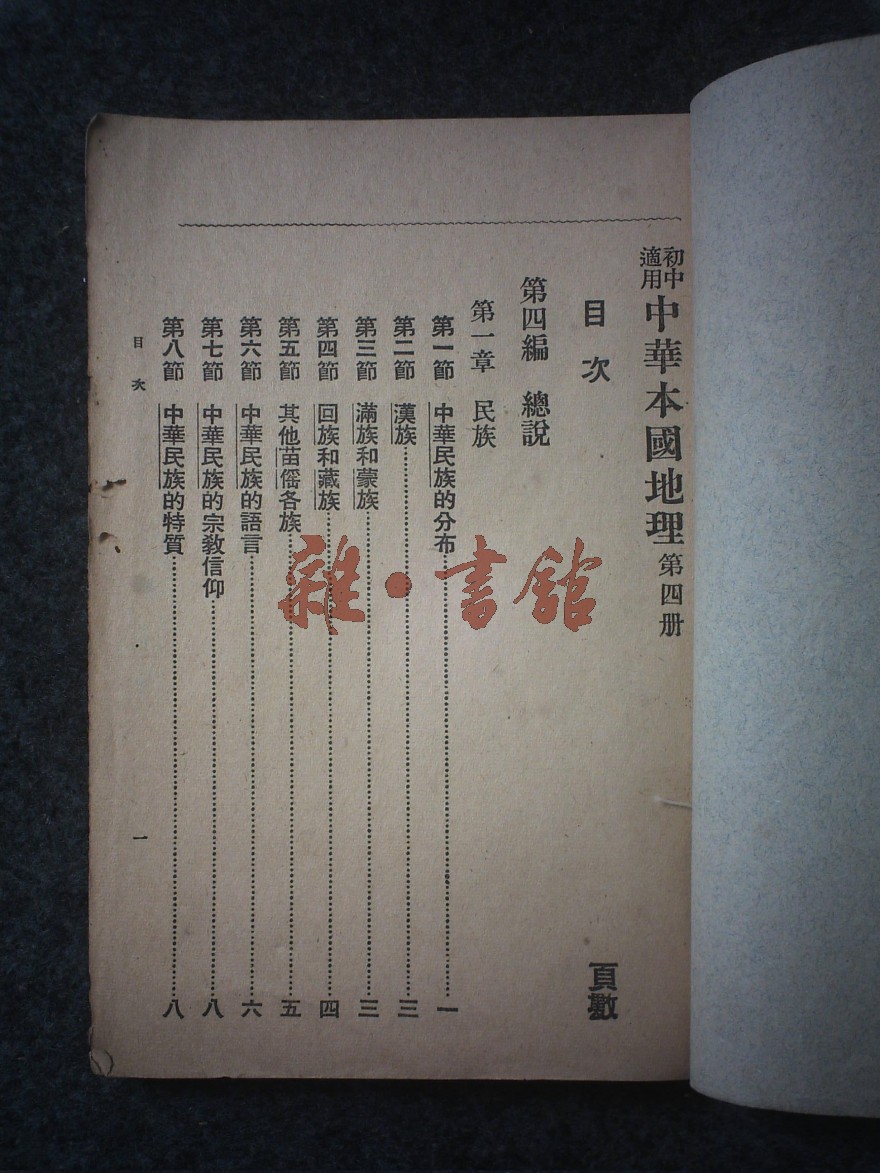 初中適用中華本國地理第四册
目次
頁數
第四編 總說
第一章 民族
第一節 中華民族的分布 一
第二節 漢族 三
第三節 滿族和蒙族 三
第四節 回族和藏族 四
第五節 其他苗傜各族 五
第六節 中華民族的語言 六
第七節 中華民族的宗教信仰 八
第八節 中華民族的特質 八
目次 一
雜·書館